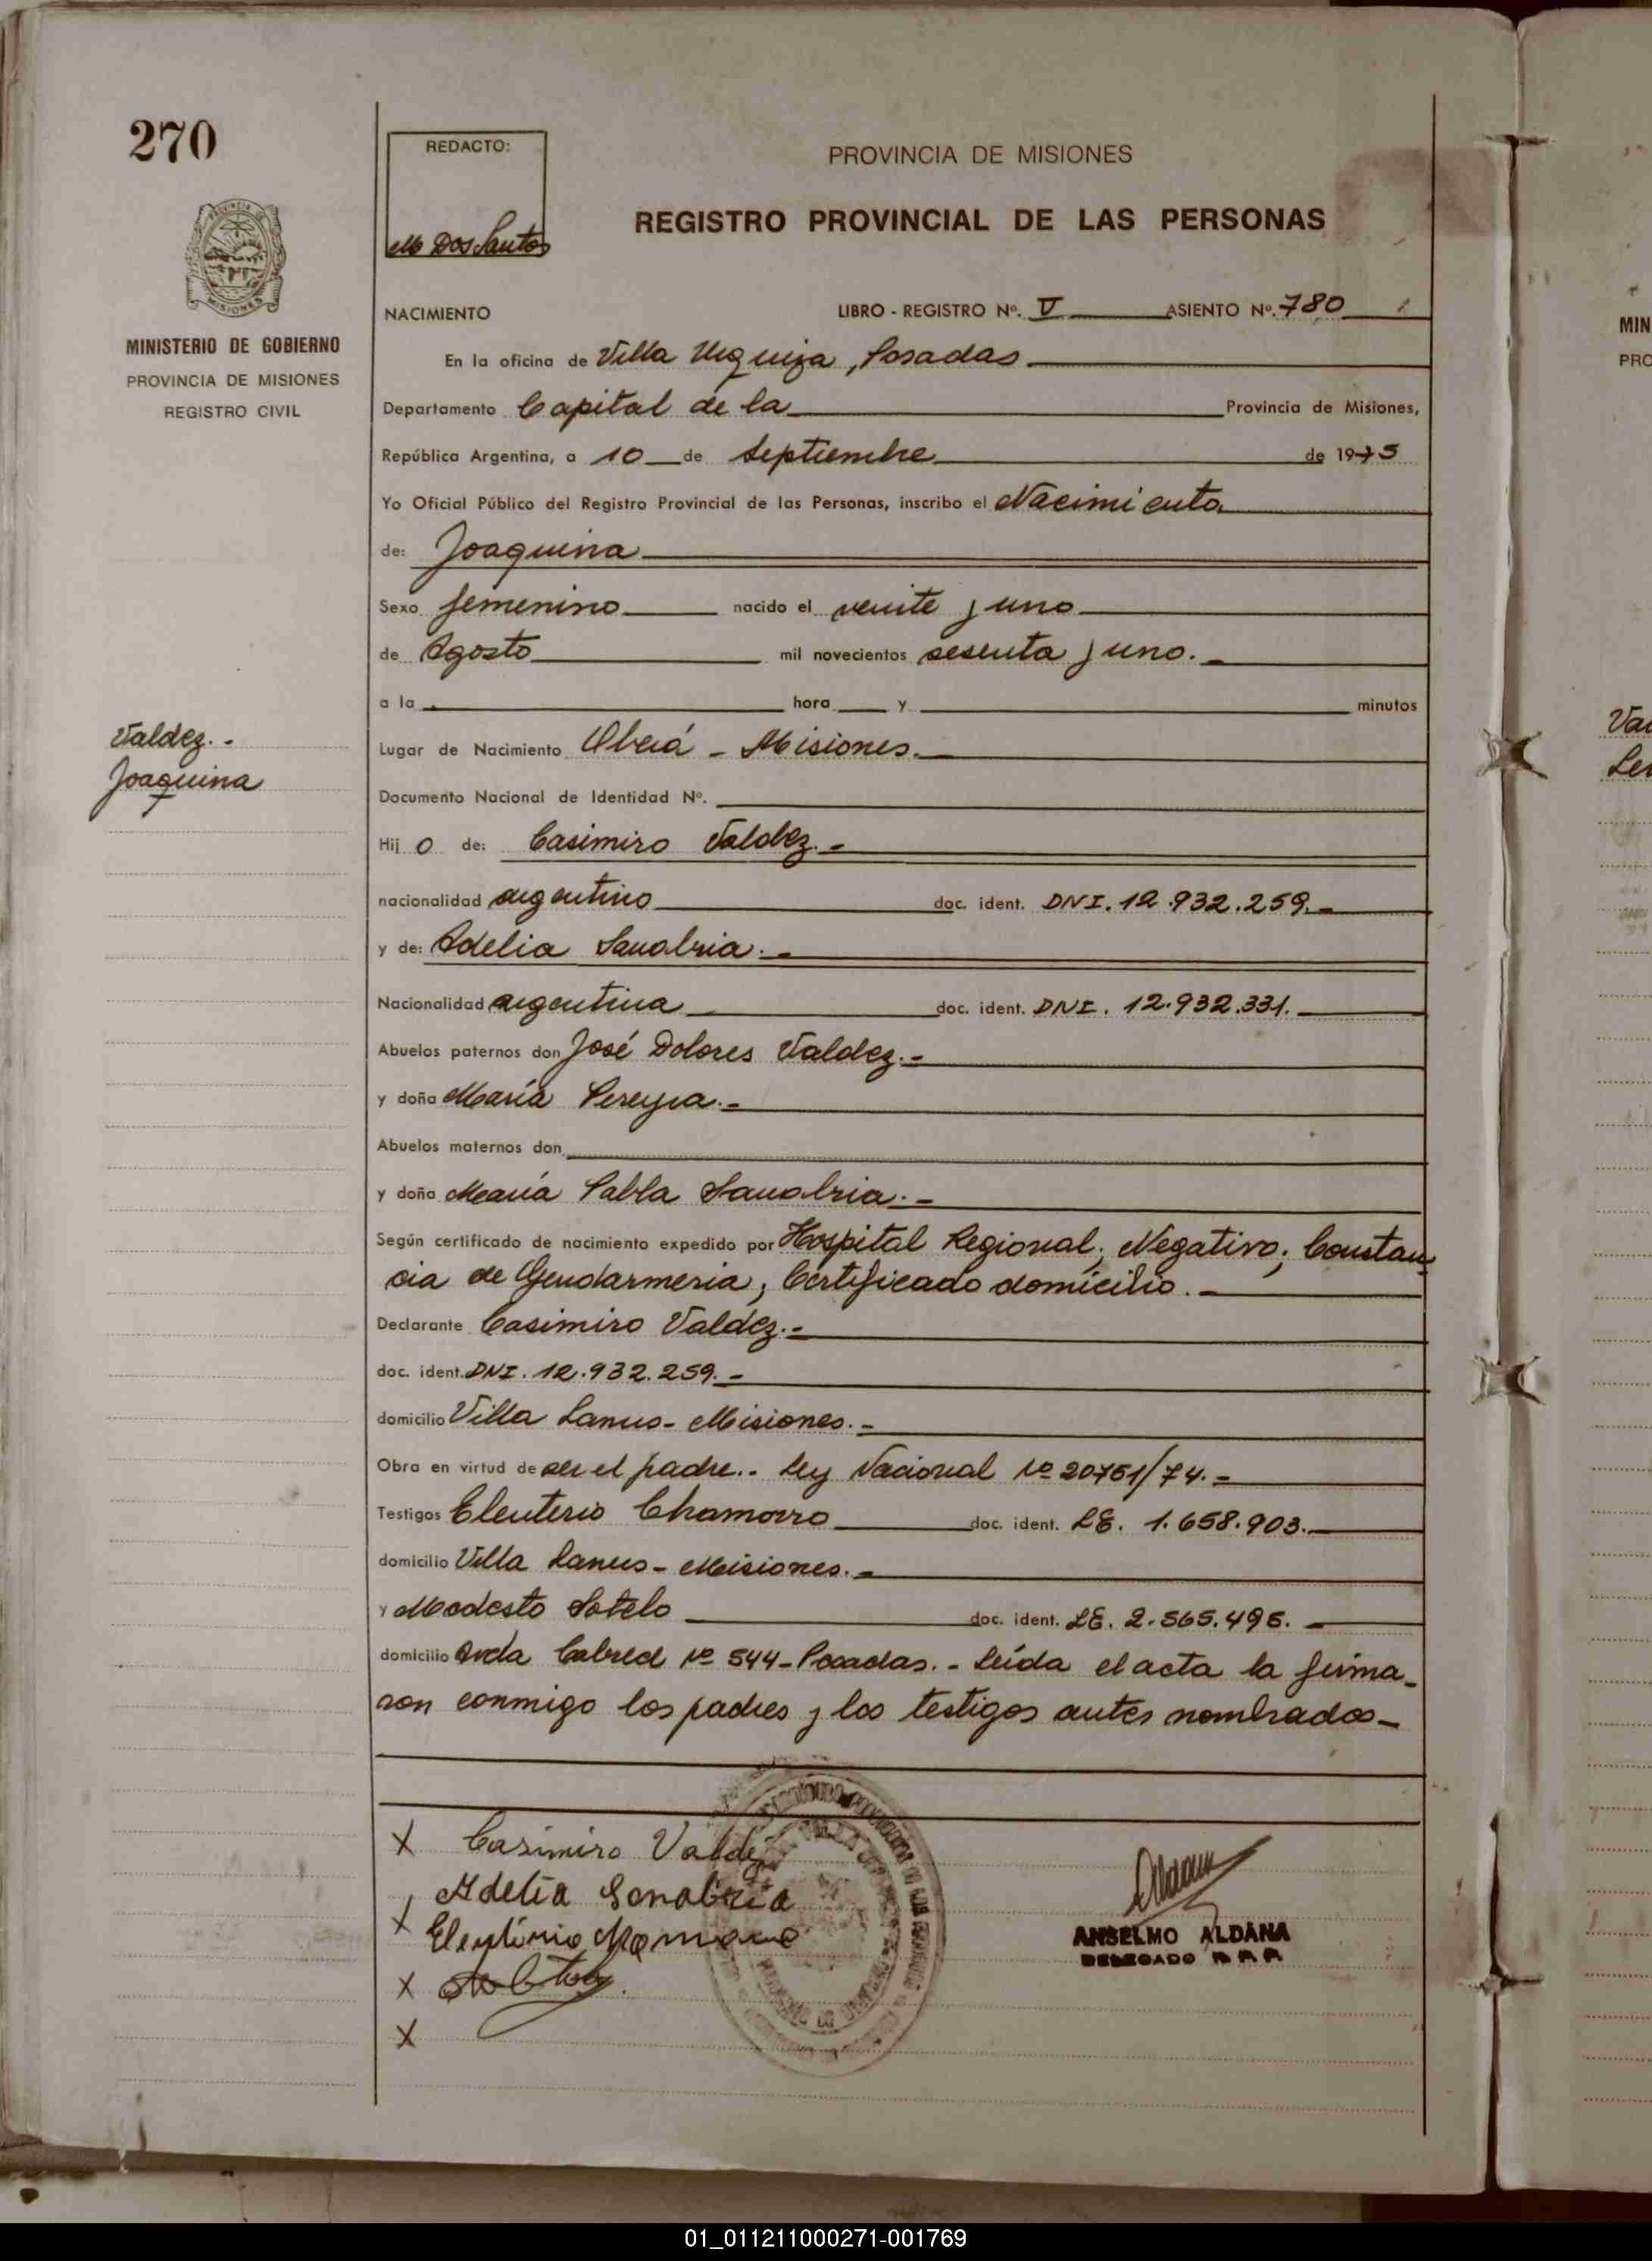 270
REDACTO:
M Dos Santos
PROVINCIA DE MISIONES
REGISTRO PROVINCIAL DE LAS PERSONAS
MINISTERIO DE GOBIERNO
PROVINCIA DE MISIONES
REGISTRO CIVIL
NACIMIENTO LIBRO - REGISTRO Nº. V ASIENTO Nº. 780
En la oficina de Villa Urquiza, Posadas
Departamento Capital de la Provincia de Misiones,
República Argentina, a 10 de Septiembre de 1975
Yo Oficial Público del Registro Provincial de las Personas, inscribo el Nacimiento
de: Joaquina
Sexo femenino nacido el veinte y uno
de Agosto mil novecientos sesenta y uno.-
a la hora y minutos
Valdez.-
Joaquina
Lugar de Nacimiento Oberá - Misiones.
Documento Nacional de Identidad Nº.
Hij o de: Casimiro Valdez.-
nacionalidad argentino doc. ident. DNI. 12.932.259.-
y de: Adelia Sanabria.-
Nacionalidad argentina doc. ident. DNI. 12.932.331.
Abuelos paternos don José Dolores Valdez.-
y doña María Pereyra.-
Abuelos maternos don
y doña María Pabla Sanabria.-
Según certificado de nacimiento expedido por Hospital Regional; Negativo; Constan
cia de Gendarmeria; Certificado domicilio.-
Declarante Casimiro Valdez.-
doc. ident. DNI. 12.932.259.-
domicilio Villa Lanus - Misiones.-
Obra en virtud de ser el padre.- Ley Nacional Nº 20751/74.-
Testigos Eleuterio Chamorro doc. ident. LE. 1.658.903.
domicilio Villa Lanus - Misiones.-
y Modesto Sotelo doc. ident. LE. 2.565.495.
domicilio Avda Cabred Nº 544 - Posadas.- Leída el acta la firma-
ron conmigo los padres y los testigos antes nombrados-
X Casimiro Valdez
X Adelia Sanabria
X
X
ANSELMO ALDANA
DELEGADO R. P. P.
MIN
PRO
01_011211000271-001769